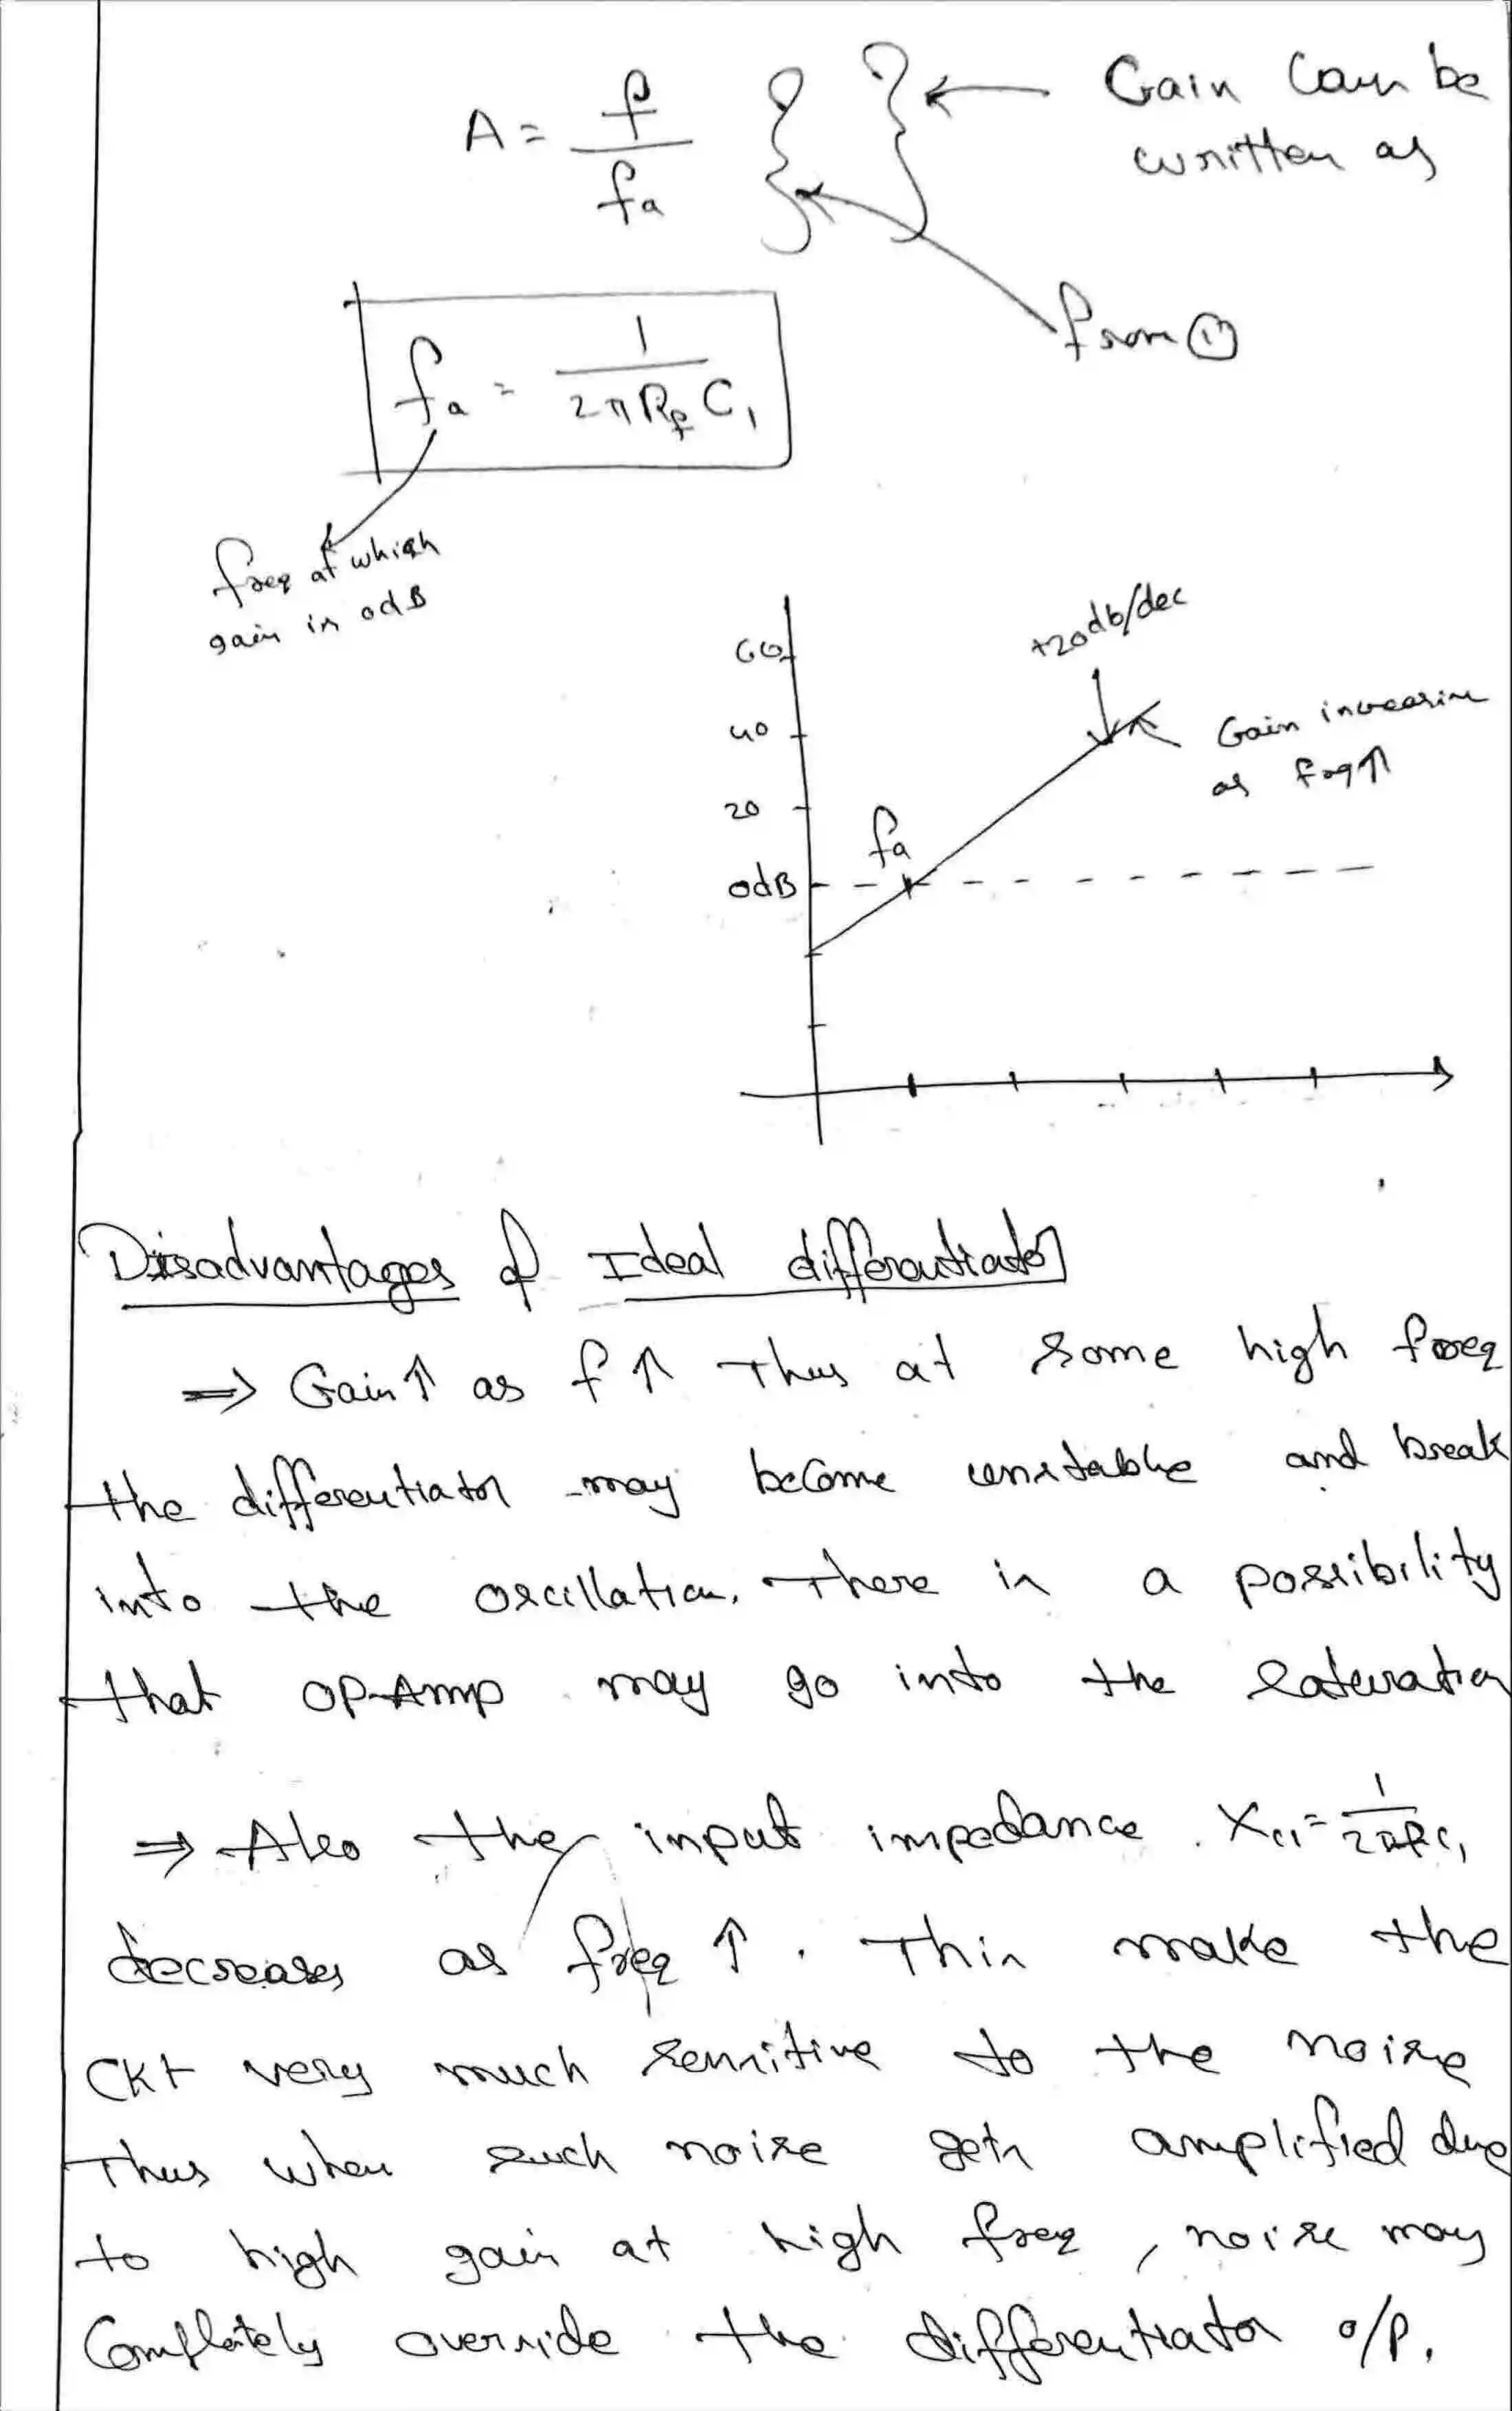 A = f / fa } } ← Gain Can be
written as
from ①
fa = 1 / 2πRfC1
freq at which
gain is 0dB
+20db/dec
60
40
Gain increasing
as freq ↑
20
fa
0dB
Disadvantages of Ideal differentiator
⇒ Gain ↑ as f ↑ Thus at some high freq
the differentiator may become unstable and break
into the oscillation. There is a possibility
that OP-Amp may go into the saturation
⇒ Also the input impedance XC1 = 1 / 2πfC1
decreases as freq ↑. This make the
Ckt very much sensitive to the noise
Thus when such noise gets amplified due
to high gain at high freq, noise may
Completely override the differentiator o/p.